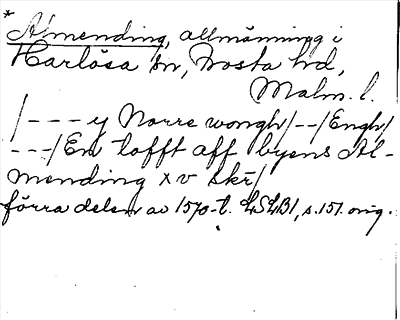 *
Almending, allmänning i
Harlösa sn, Frosta hd,
Malm. l.
/--- y Norre wongh/--/Engh/
---/En tofft aff byens Al-
mending xv skr/
förra delen av 1570-t. LSLB1, s. 151. orig.